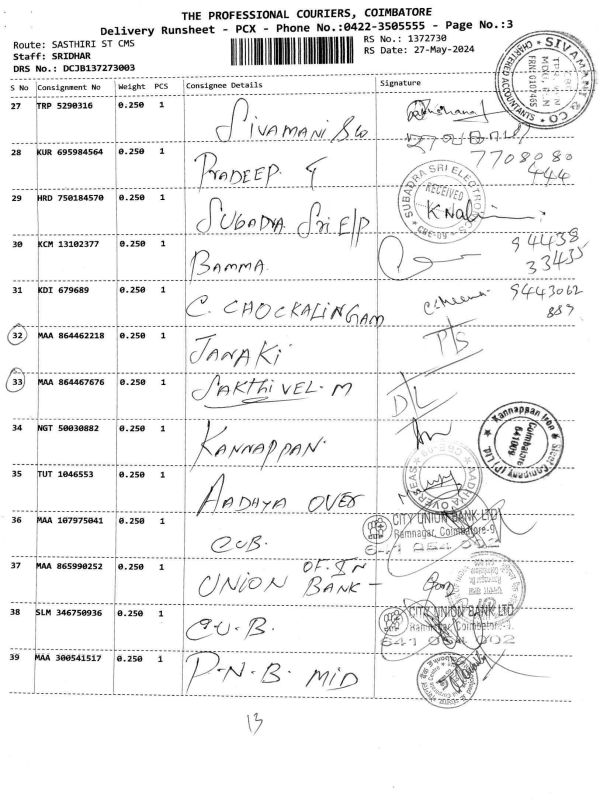 THE PROFESSIONAL COURIERS, COIMBATORE
Delivery Runsheet - PCX - Phone No.:0422-3505555 - Page No.:3
Route: SASTHIRI ST CMS
RS No.: 1372730
Staff: SRIDHAR
RS Date: 27-May-2024
DRS No.: DCJB137273003
S No Consignment No Weight PCS Consignee Details Signature
27 TRP 5290316 0.250 1 SIVAMANI &co
SIVAMANI & CO
CHARTERED ACCOUNTANTS
28 KUR 695984564 0.250 1 PRADEEP. G 7708080
444
29 HRD 750184570 0.250 1 SUBADRA Sri E/P
SUBADRA SRI ELECTRONICS
RECEIVED
CBE-09
30 KCM 13102377 0.250 1 BAMMA. 94438
33435
31 KDI 679689 0.250 1 C. CHOCKALINGAM 9443062
887
32 MAA 864462218 0.250 1 JANAKI P/S
33 MAA 864467676 0.250 1 SAKTHIVEL. M D/L
34 NGT 50030882 0.250 1 KANNAPPAN.
Kannappan Iron & Steel Company (P) Ltd.
Coimbatore
641009
35 TUT 1046553 0.250 1 AADAYA OVER
AADHYA OVERSEAS
CBE-09
36 MAA 107975041 0.250 1 CUB.
CITY UNION BANK LTD
Ramnagar, Coimbatore-9.
37 MAA 865990252 0.250 1 UNION BANK OF. IN
38 SLM 346750936 0.250 1 CU.B.
CITY UNION BANK LTD
Ramnagar, Coimbatore-9.
641 054 002
39 MAA 300541517 0.250 1 P.N.B. MID
13